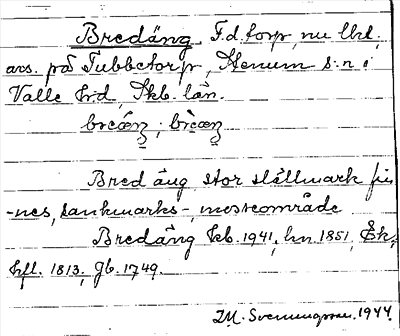 Bredäng, F.d. torp, nu lht,
ars. på Tubbetorp, Henum s:n i
Valle hd, Skb. län.
Bredäng, stor slåttmark fin-
-nes, sankmarks-, mosteområde
Bredäng Kb. 1941, hn. 1851, Ek,
hfl. 1813, Jb. 1749.
I.M. Svenungsson. 1944.